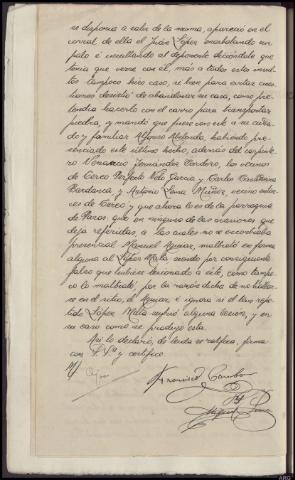 se disponia a salir de la misma, apareció en el
corral de ella el Juan López enarbolando un
palo e insultando al deponente diciéndole que
tenia que verse con el, mas a todo esto insul-
tos tampoco hizo caso, si bien para evitar cues-
tiones desistió de abandonar su casa, como pre-
tendia hacerlo con el carro para transportar
piedra, y mandó que fuera con este a su cuña-
do y familiar Alfonso Abelenda, habiendo pre-
senciado este último hecho, además del carpinte-
ro Venancio Fernández Cordero, los vecinos
de Cerceo Perfecto Vido Garcia y Carlos Castiñeira
Bardanca y Antonio Lema Muñiz, vecino enton-
ces de Cerceo y que ahora lo es de la parroquia
de Pazos. Que en ninguna de las ocasiones que
deja referidas, a las cuales no se encontraba
presencial Manuel Aguiar, maltrató en forma
alguna al López Mata siendo por consiguiente
falso que hubiese lesionado a este, como tampo-
co lo maltrató, por la razón dicha de no hallar-
se en el sitio, el Aguiar, e ignora si el tan repe-
tido López Mata sufrió alguna lesión, y en
su caso como se produjo esta.
Asi lo declaró, de leida se ratifica, firma
con S.Sª y certifico.
Francisco